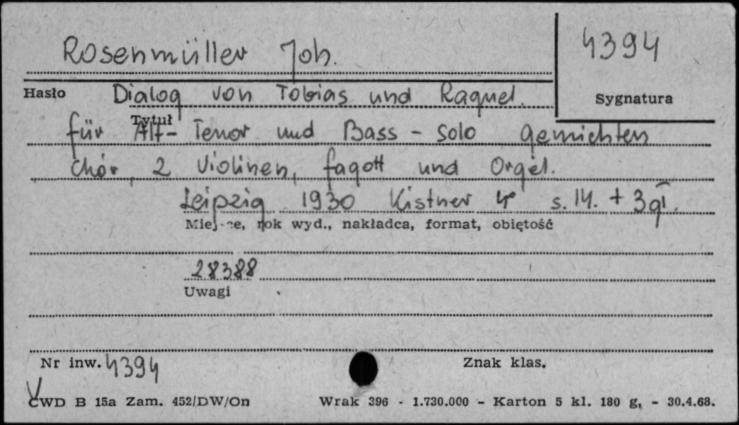 Rosenmüller Joh. 4394
Hasło Dialog von Tobias und Raguel. Sygnatura
Tytuł
für Alt- Tenor und Bass - solo gemichten
Chór, 2 Violinen, fagott und Orgel.
Leipzig 1930 Kistner 4° s. 14. + 3 gł.
Miejsce, rok wyd., nakładca, format, objętość
28388
Uwagi
Nr inw. 4394 Znak klas.
CWD B 15a Zam. 452/DW/On Wrak 396 - 1.730.000 - Karton 5 kl. 180 g. - 30.4.68.